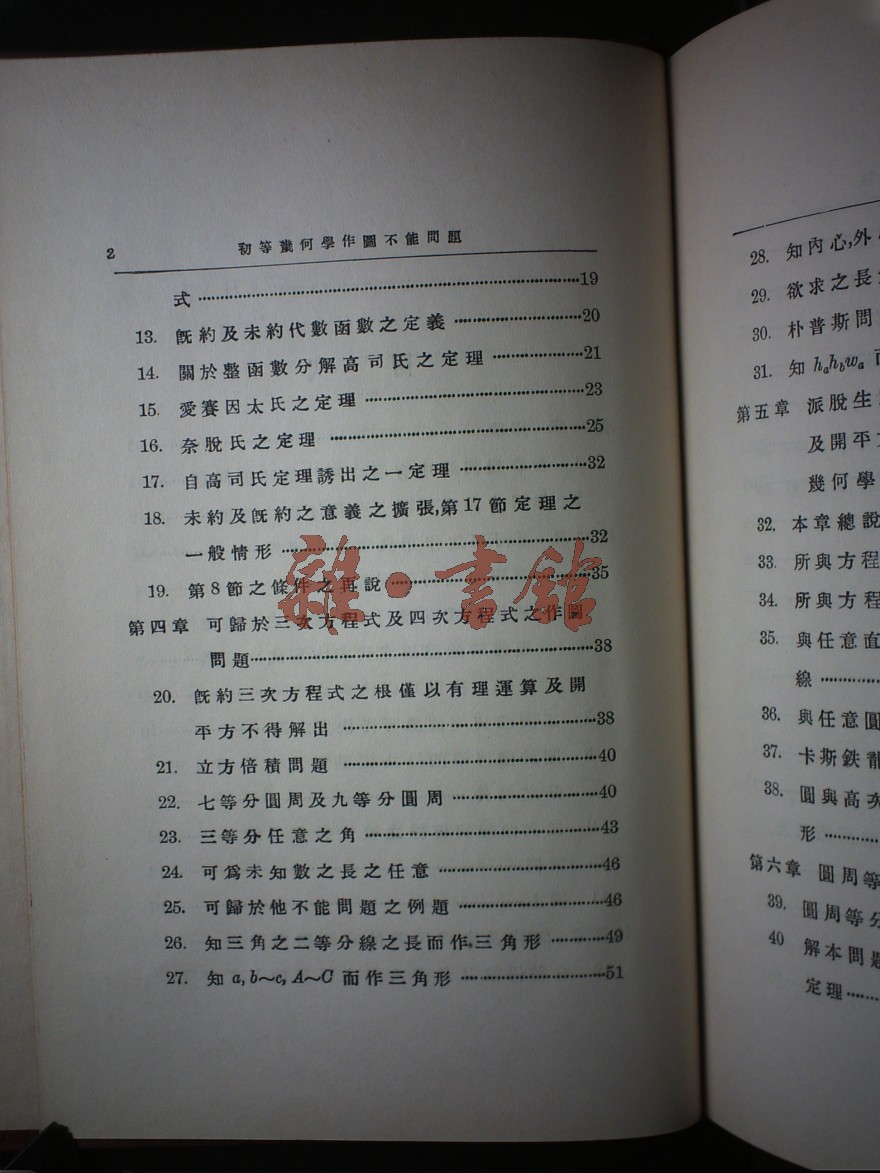 2 初等幾何學作圖不能問題
式 ……19
13. 旣約及未約代數函數之定義 ……20
14. 關於整函數分解高司氏之定理 ……21
15. 愛賽因太氏之定理 ……23
16. 奈脫氏之定理 ……25
17. 自高司氏定理誘出之一定理 ……32
18. 未約及旣約之意義之擴張,第17節定理之
一般情形 ……32
19. 第8節之條件之再說 ……35
第四章 可歸於三次方程式及四次方程式之作圖
問題 ……38
20. 旣約三次方程式之根僅以有理運算及開
平方不得解出 ……38
21. 立方倍積問題 ……40
22. 七等分圓周及九等分圓周 ……40
23. 三等分任意之角 ……43
24. 可爲未知數之長之任意 ……46
25. 可歸於他不能問題之例題 ……46
26. 知三角之二等分線之長而作三角形 ……49
27. 知 a, b~c, A~C 而作三角形 ……51
雜·書館
28. 知內心,外
29. 欲求之長
30. 朴普斯問
31. 知 hₐh_bwₐ
第五章 派脫生
及開平
幾何學
32. 本章總說
33. 所與方程
34. 所與方程
35. 與任意直
線 ……
36. 與任意圓
37. 卡斯鉄
38. 圓與高次
形 ……
第六章 圓周等
39. 圓周等分
40 解本問題
定理 ……